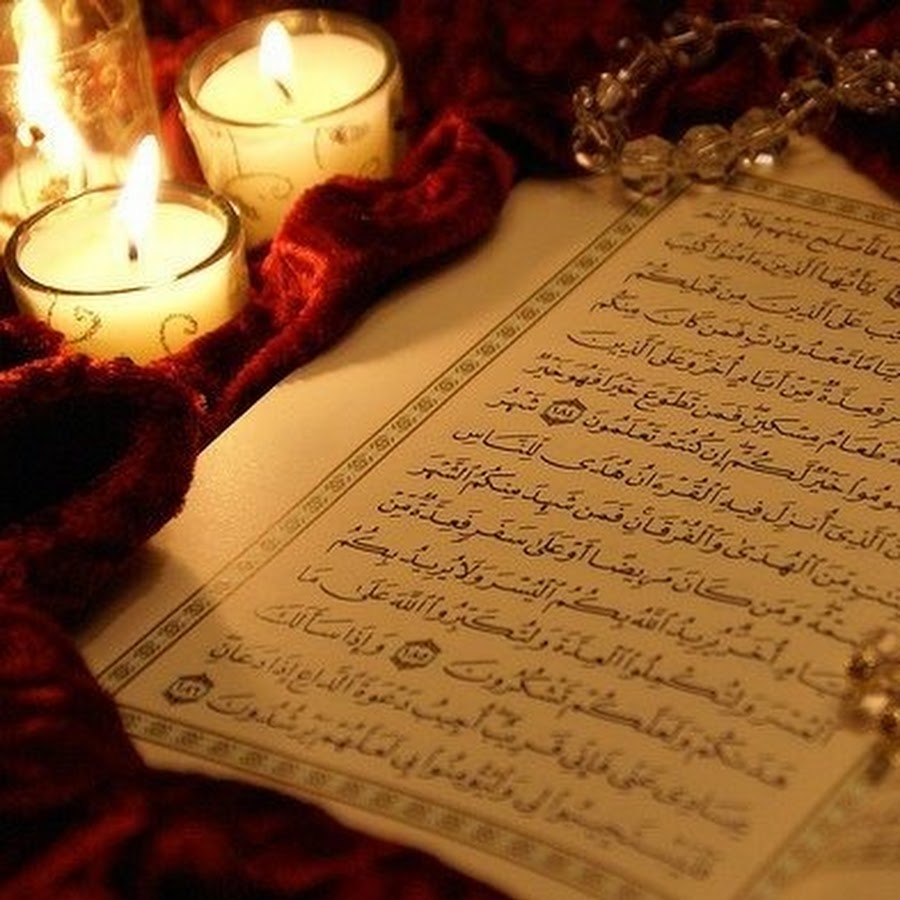 فَأَصْلَحَ بَيْنَهُمْ فَلَآ إِثْمَ
يَٰٓأَيُّهَا ٱلَّذِينَ ءَامَنُوا۟ كُتِبَ
عَلَى ٱلَّذِينَ مِن قَبْلِكُمْ
أَيَّامًا مَّعْدُودَٰتٍ فَمَن كَانَ مِنكُم
فَعِدَّةٌ مِّنْ أَيَّامٍ أُخَرَ وَعَلَى ٱلَّذِينَ
طَعَامُ مِسْكِينٍ فَمَن تَطَوَّعَ خَيْرًا فَهُوَ خَيْرٌ
تَصُومُوا۟ خَيْرٌ لَّكُمْ إِن كُنتُمْ تَعْلَمُونَ ١٨٤ شَهْرُ
ٱلَّذِىٓ أُنزِلَ فِيهِ ٱلْقُرْءَانُ هُدًى لِّلنَّاسِ
مِّنَ ٱلْهُدَىٰ وَٱلْفُرْقَانِ فَمَن شَهِدَ مِنكُمُ ٱلشَّهْرَ
وَمَن كَانَ مَرِيضًا أَوْ عَلَىٰ سَفَرٍ فَعِدَّةٌ مِّنْ
أُخَرَ يُرِيدُ ٱللَّهُ بِكُمُ ٱلْيُسْرَ وَلَا يُرِيدُ بِكُمُ
ٱلْعُسْرَ وَلِتُكْمِلُوا۟ ٱلْعِدَّةَ وَلِتُكَبِّرُوا۟ ٱللَّهَ عَلَىٰ مَا
هَدَىٰكُمْ وَلَعَلَّكُمْ تَشْكُرُونَ ١٨٥ وَإِذَا سَأَلَكَ
عِبَادِى عَنِّى فَإِنِّى قَرِيبٌ أُجِيبُ دَعْوَةَ ٱلدَّاعِ إِذَا دَعَانِ
فَلْيَسْتَجِيبُوا۟ لِى وَلْيُؤْمِنُوا۟ بِى لَعَلَّهُمْ يَرْشُدُونَ ١٨٦